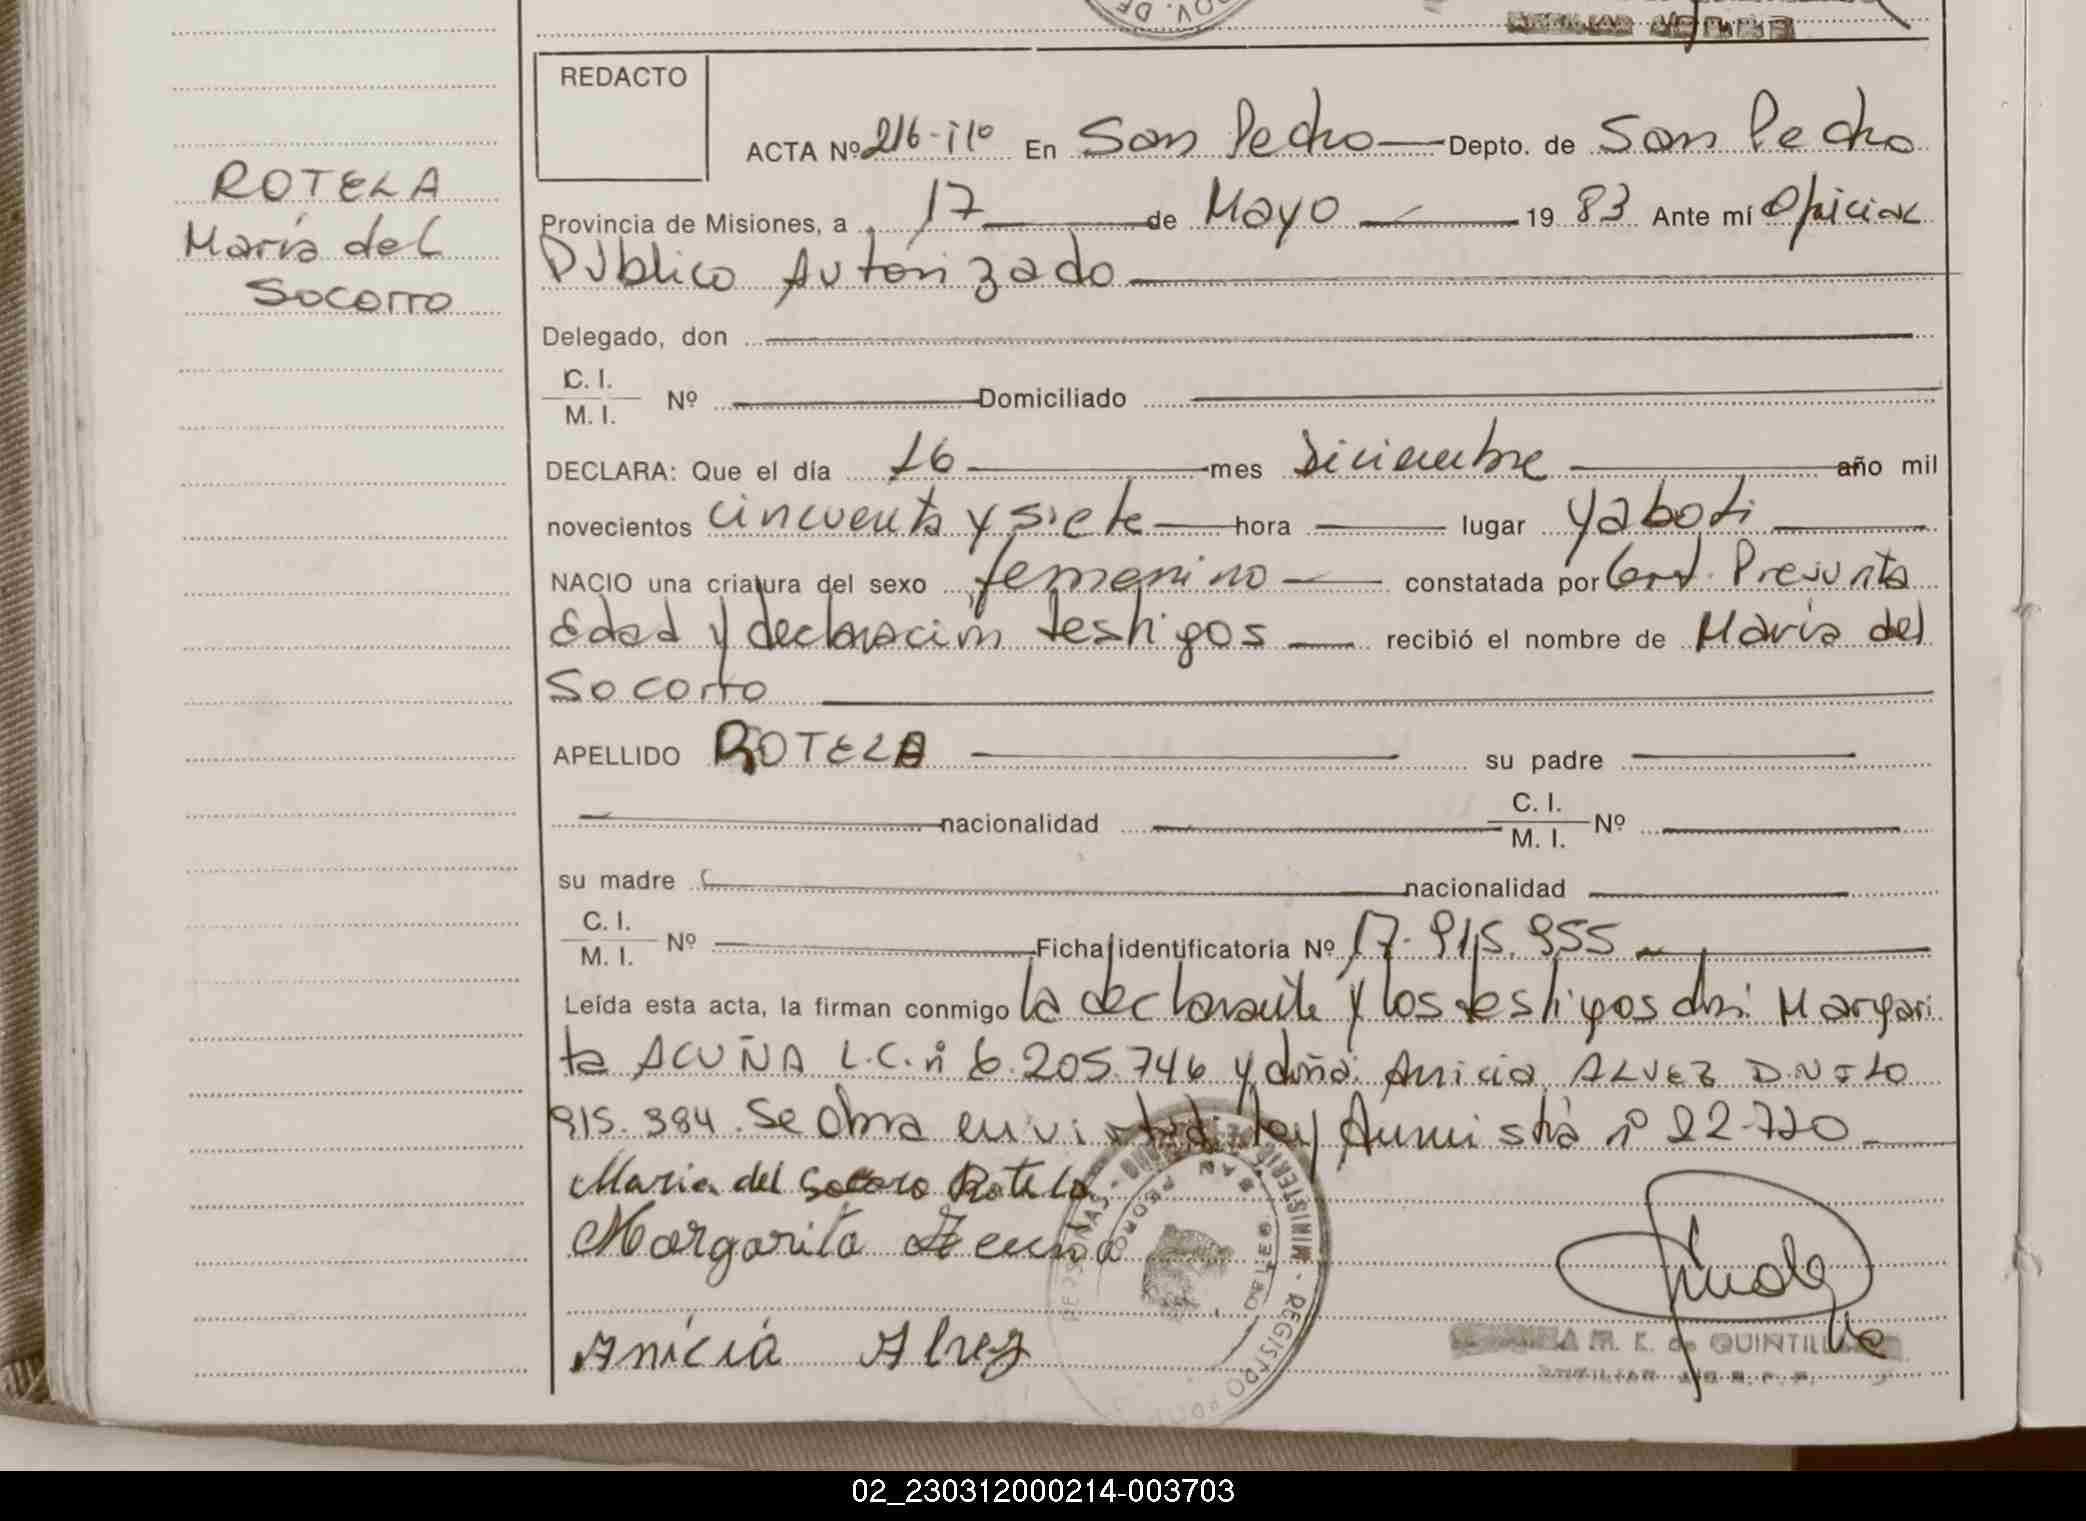 REDACTO
ACTA Nº 216-iiº En San Pedro Depto. de San Pedro
ROTELA
María del
Socorro
Provincia de Misiones, a 17 de Mayo 19 83 Ante mí Oficial
Público Autorizado
Delegado, don
C. I.
M. I. Nº Domiciliado
DECLARA: Que el día 16 mes Diciembre año mil
novecientos cincuenta y siete hora lugar Yaboti
NACIO una criatura del sexo femenino constatada por Cert. Presunta
Edad y declaración testigos recibió el nombre de María del
Socorro
APELLIDO ROTELA su padre
nacionalidad C. I.
M. I. Nº
su madre nacionalidad
C. I.
M. I. Nº Ficha identificatoria Nº 17.915.955
Leída esta acta, la firman conmigo la declarante y los testigos dña Margari
ta ACUÑA L.C. nº 6.205.746 y doña: Anicia ALVEZ D.N.I 10
915.384. Se obra en virtud ley Amnistía nº 22-720
Maria del Socoro Rotela
Margarita Acuña
Anicia Alvez
A M. E. de QUINTILL
AUXILIAR
REGISTRO
MINISTERIO
PERSONAS
SAN PEDRO
02_230312000214-003703